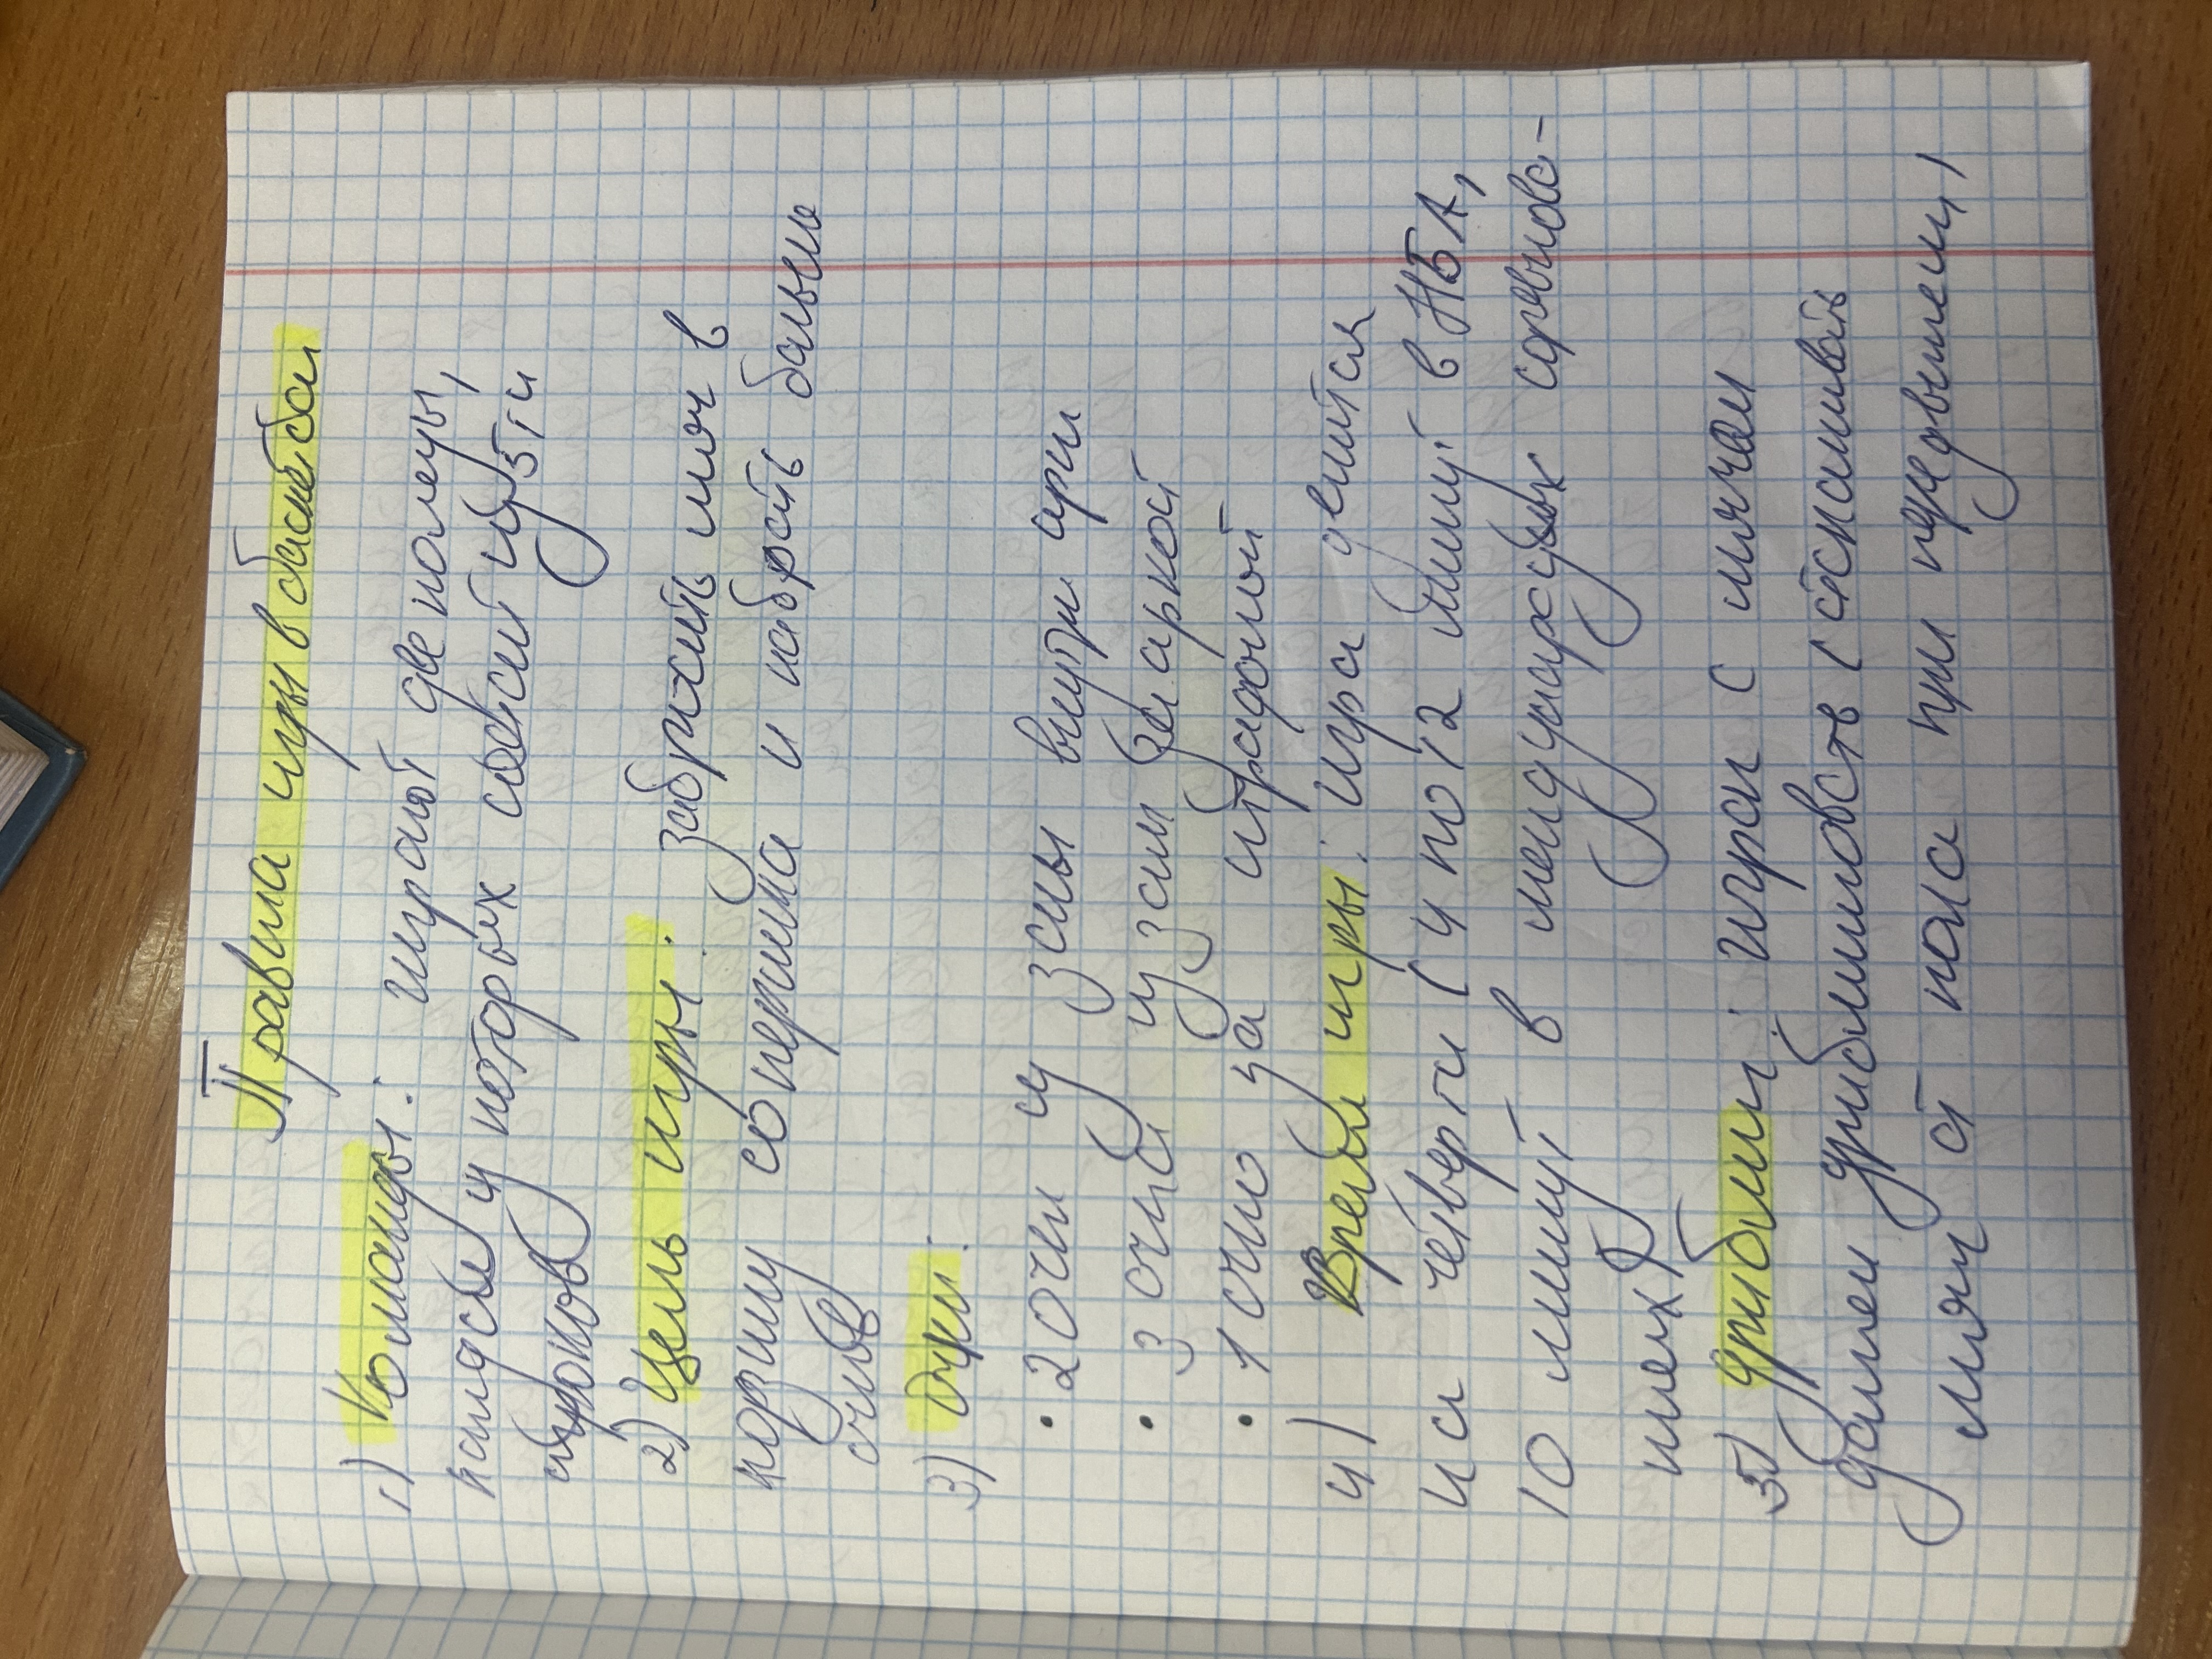 Правила игры в баскетбол
1) Команды: играют две команды,
каждая у которых состоит из 5ти
игроков
2) Цель игры: забрасить мяч в
корзину соперника и набрать больше
очков
3) Очки:
• 2 очки из зоны внутри арки
• 3 очка из зоны за аркой
• 1 очко за штрафной
4) Время игры: игра делится
на четверти (4 по 12 минут в НБА,
10 минут в международных соревнова-
ниях)
5) Дриблинг: игрок с мячом
должен дриблинговать (отскакивать
мяч от пола при передвижении,